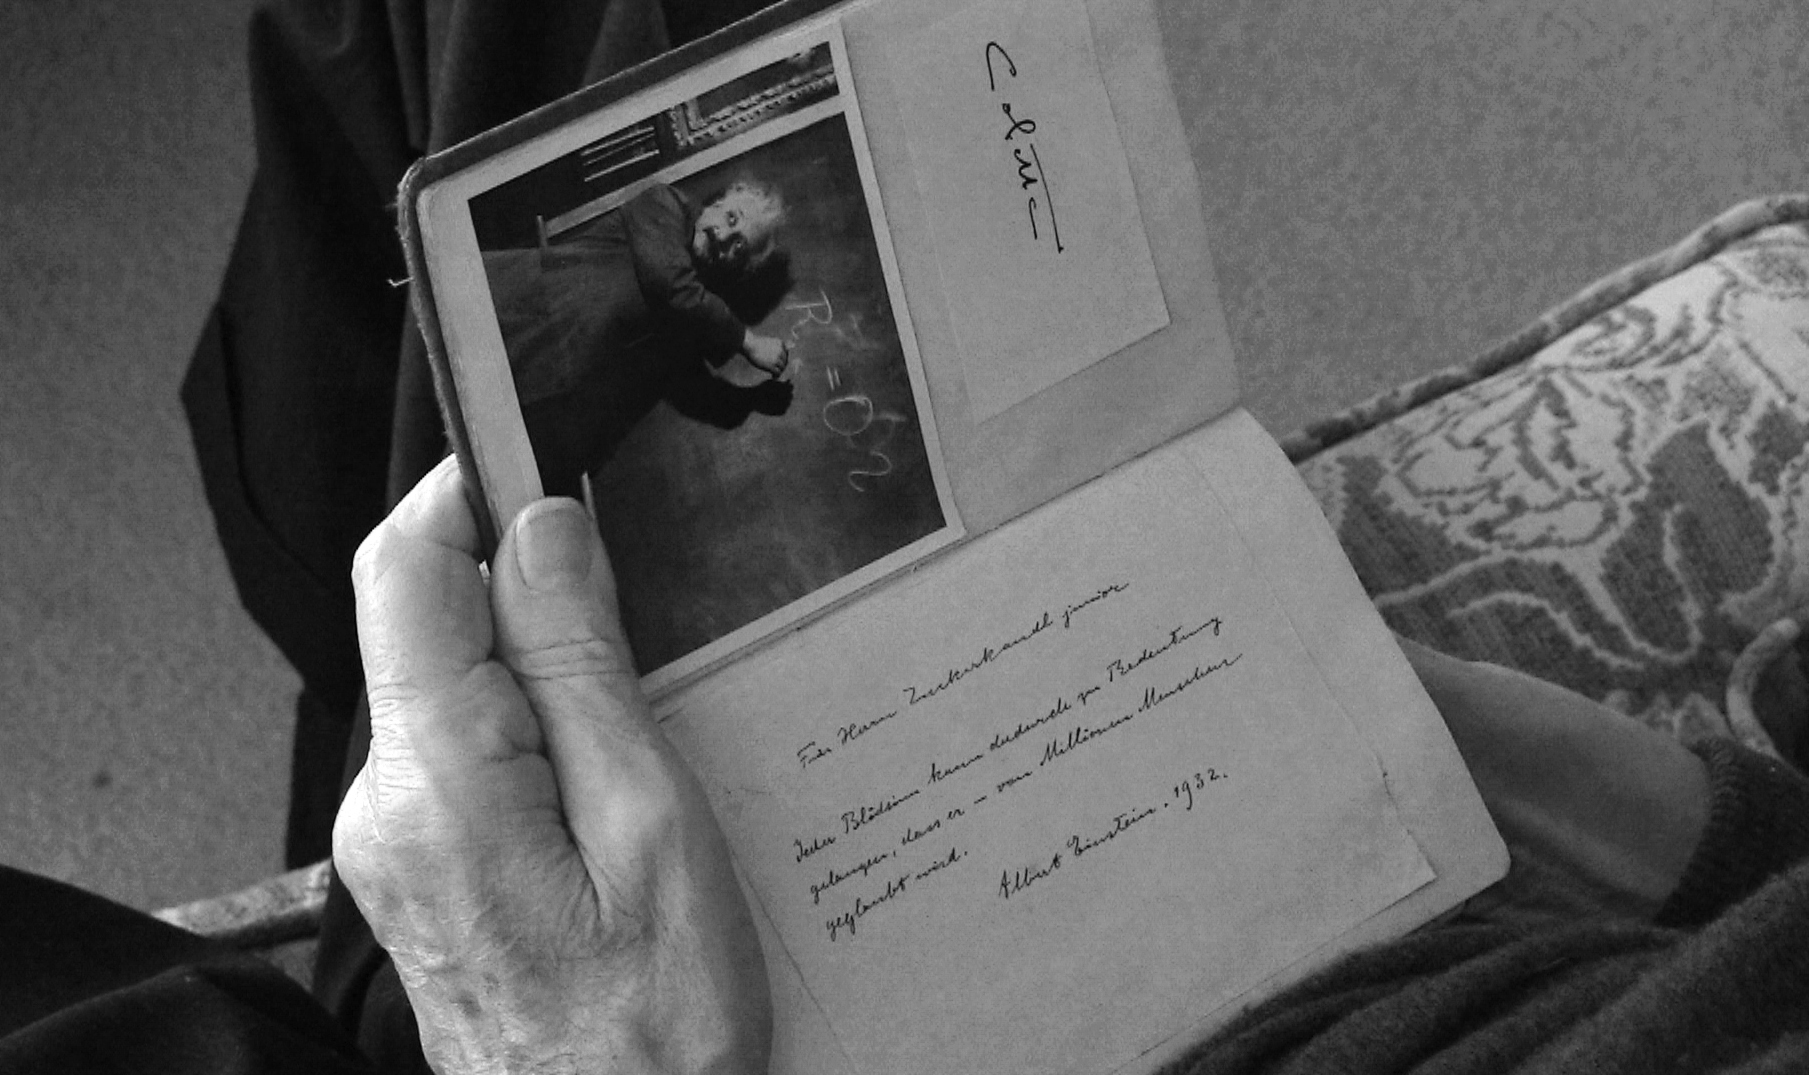 Colette
R = 0 ?
Für Herrn Zuckerkandl junior
Jeder Blödsinn kann dadurch zu Bedeutung
gelangen, dass er – von Millionen Menschen
geglaubt wird.
Albert Einstein. 1932.